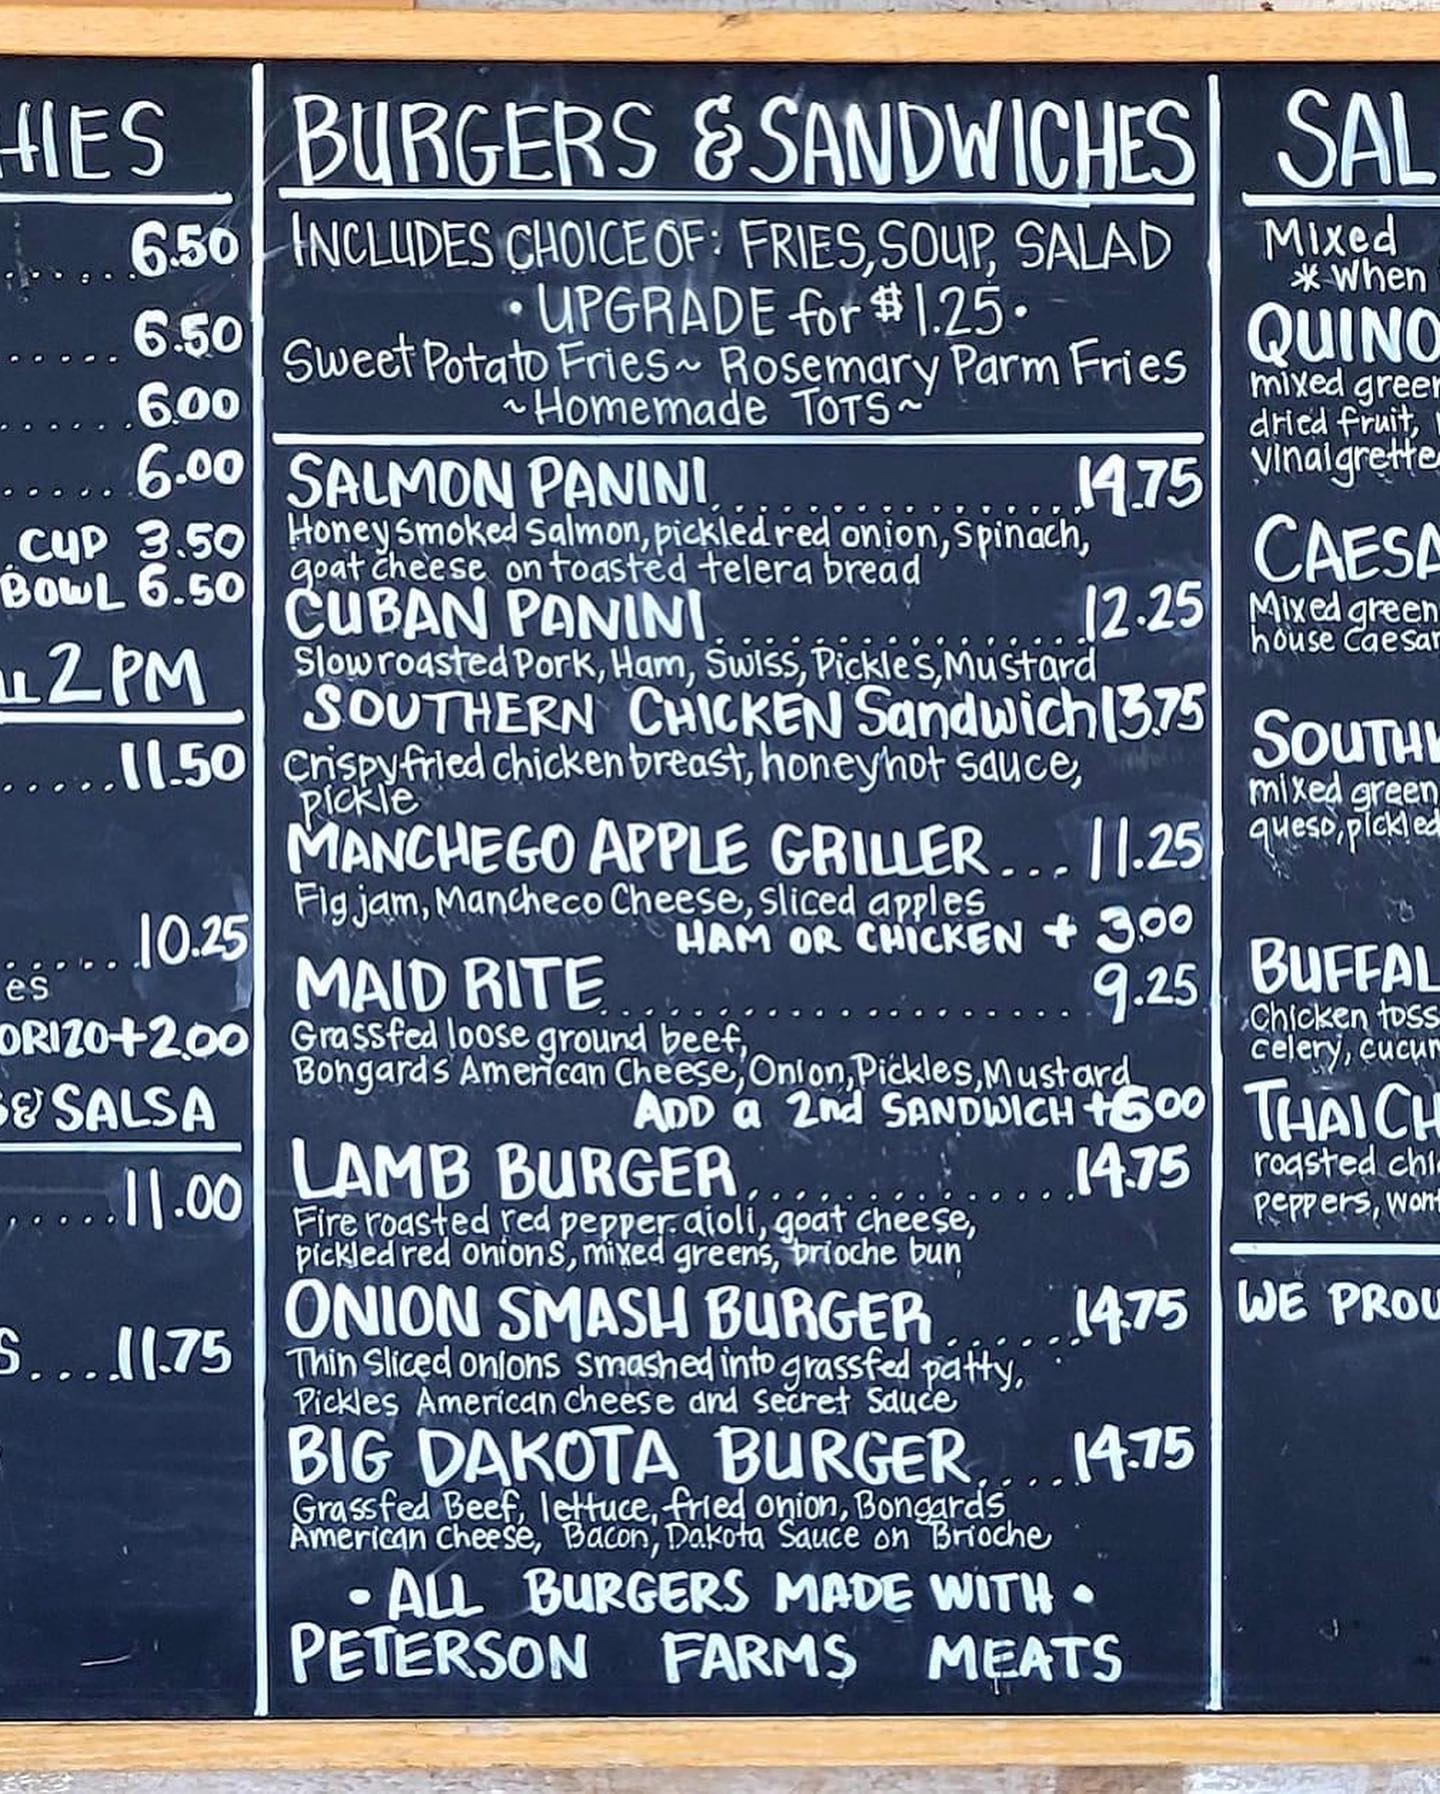 HIES
6.50
6.50
6.00
6.00
CUP 3.50
BOWL 6.50
2 PM
11.50
10.25
es
ORIZO+2.00
& SALSA
11.00
S....11.75
BURGERS & SANDWICHES
INCLUDES CHOICE OF: FRIES, SOUP, SALAD
• UPGRADE for $1.25 •
Sweet Potato Fries ~ Rosemary Parm Fries
~ Homemade TOTS ~
SALMON PANINI................14.75
Honey Smoked Salmon, pickled red onion, spinach,
goat cheese on toasted telera bread
CUBAN PANINI................12.25
Slow roasted Pork, Ham, Swiss, Pickle's, Mustard
SOUTHERN CHICKEN Sandwich 13.75
Crispy fried chicken breast, honey hot sauce,
pickle
MANCHEGO APPLE GRILLER... 11.25
Fig jam, Mancheco Cheese, sliced apples
HAM OR CHICKEN + 3.00
MAID RITE..................... 9.25
Grassfed loose ground beef,
Bongards American Cheese, Onion, Pickles, Mustard
ADD a 2nd SANDWICH +6.00
LAMB BURGER..............14.75
Fire roasted red pepper aioli, goat cheese,
pickled red onions, mixed greens, brioche bun
ONION SMASH BURGER......14.75
Thin Sliced onions smashed into grassfed patty,
Pickles American cheese and secret Sauce
BIG DAKOTA BURGER....14.75
Grassfed Beef, lettuce, fried onion, Bongards
American Cheese, Bacon, Dakota Sauce on Brioche
• ALL BURGERS MADE WITH •
PETERSON FARMS MEATS
SAL
Mixed
* When
QUINO
mixed green
dried fruit,
vinaigrette
CAESA
Mixed green
house Caesar
SOUTHW
mixed green
queso, pickled
BUFFAL
Chicken toss
celery, cucum
THAI CH
roasted chi
peppers, wont
WE PROU